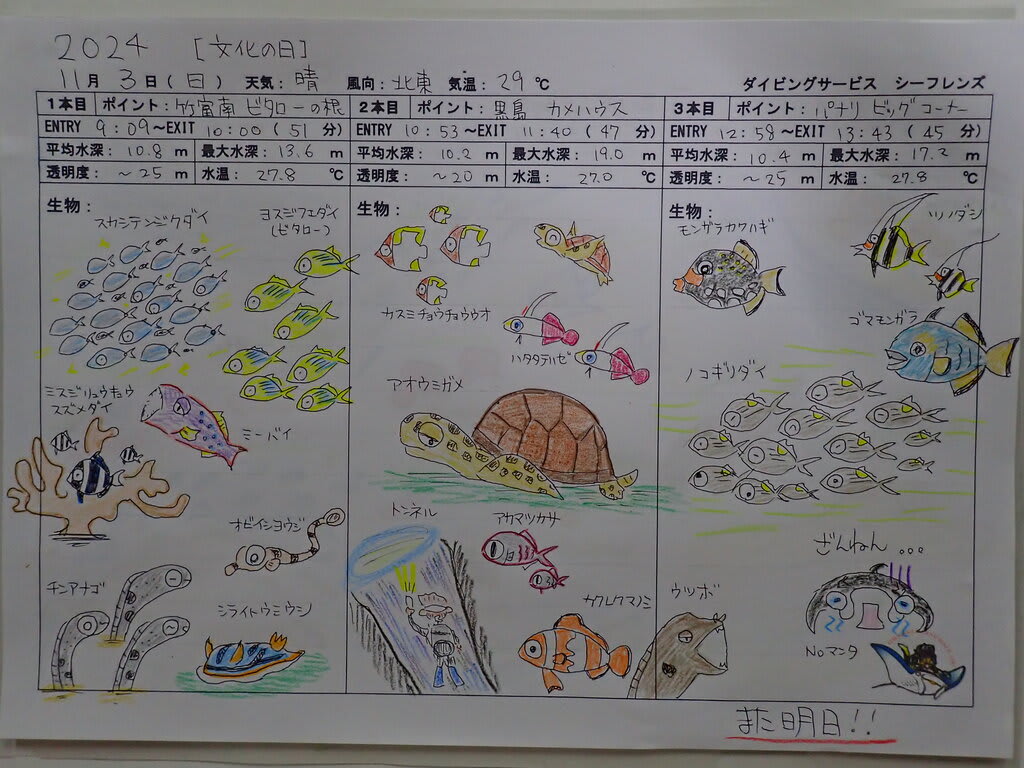 2024 [文化の日]
11月 3日(日) 天気: 晴 風向: 北東 気温: 29℃ ダイビングサービス シーフレンズ
1本目 ポイント: 竹富南 ビタローの根
ENTRY 9:09~EXIT 10:00 (51 分)
平均水深: 10.8 m 最大水深: 13.6 m
透明度: ~25 m 水温: 27.8 ℃
生物:
スカシテンジクダイ
ヨスジフエダイ
(ビタロー)
ミスジリュウキュウ
スズメダイ
ミーバイ
オビイシヨウジ
チンアナゴ
シライトウミウシ
2本目 ポイント: 黒島 カメハウス
ENTRY 10:53~EXIT 11:40 (47 分)
平均水深: 10.2 m 最大水深: 19.0 m
透明度: ~20 m 水温: 27.0 ℃
生物:
カスミチョウチョウウオ
ハタタテハゼ
アオウミガメ
トンネル
アカマツカサ
カクレクマノミ
3本目 ポイント: パナリ ビッグコーナー
ENTRY 12:58~EXIT 13:43 (45 分)
平均水深: 10.4 m 最大水深: 17.2 m
透明度: ~25 m 水温: 27.8 ℃
生物:
モンガラカワハギ
ツノダシ
ゴマモンガラ
ノコギリダイ
ざんねん...
ウツボ
Noマンタ
また明日!!